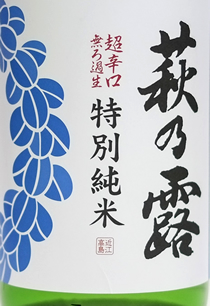 萩乃露
特別純米
超辛口
無ろ過生
近江
高島